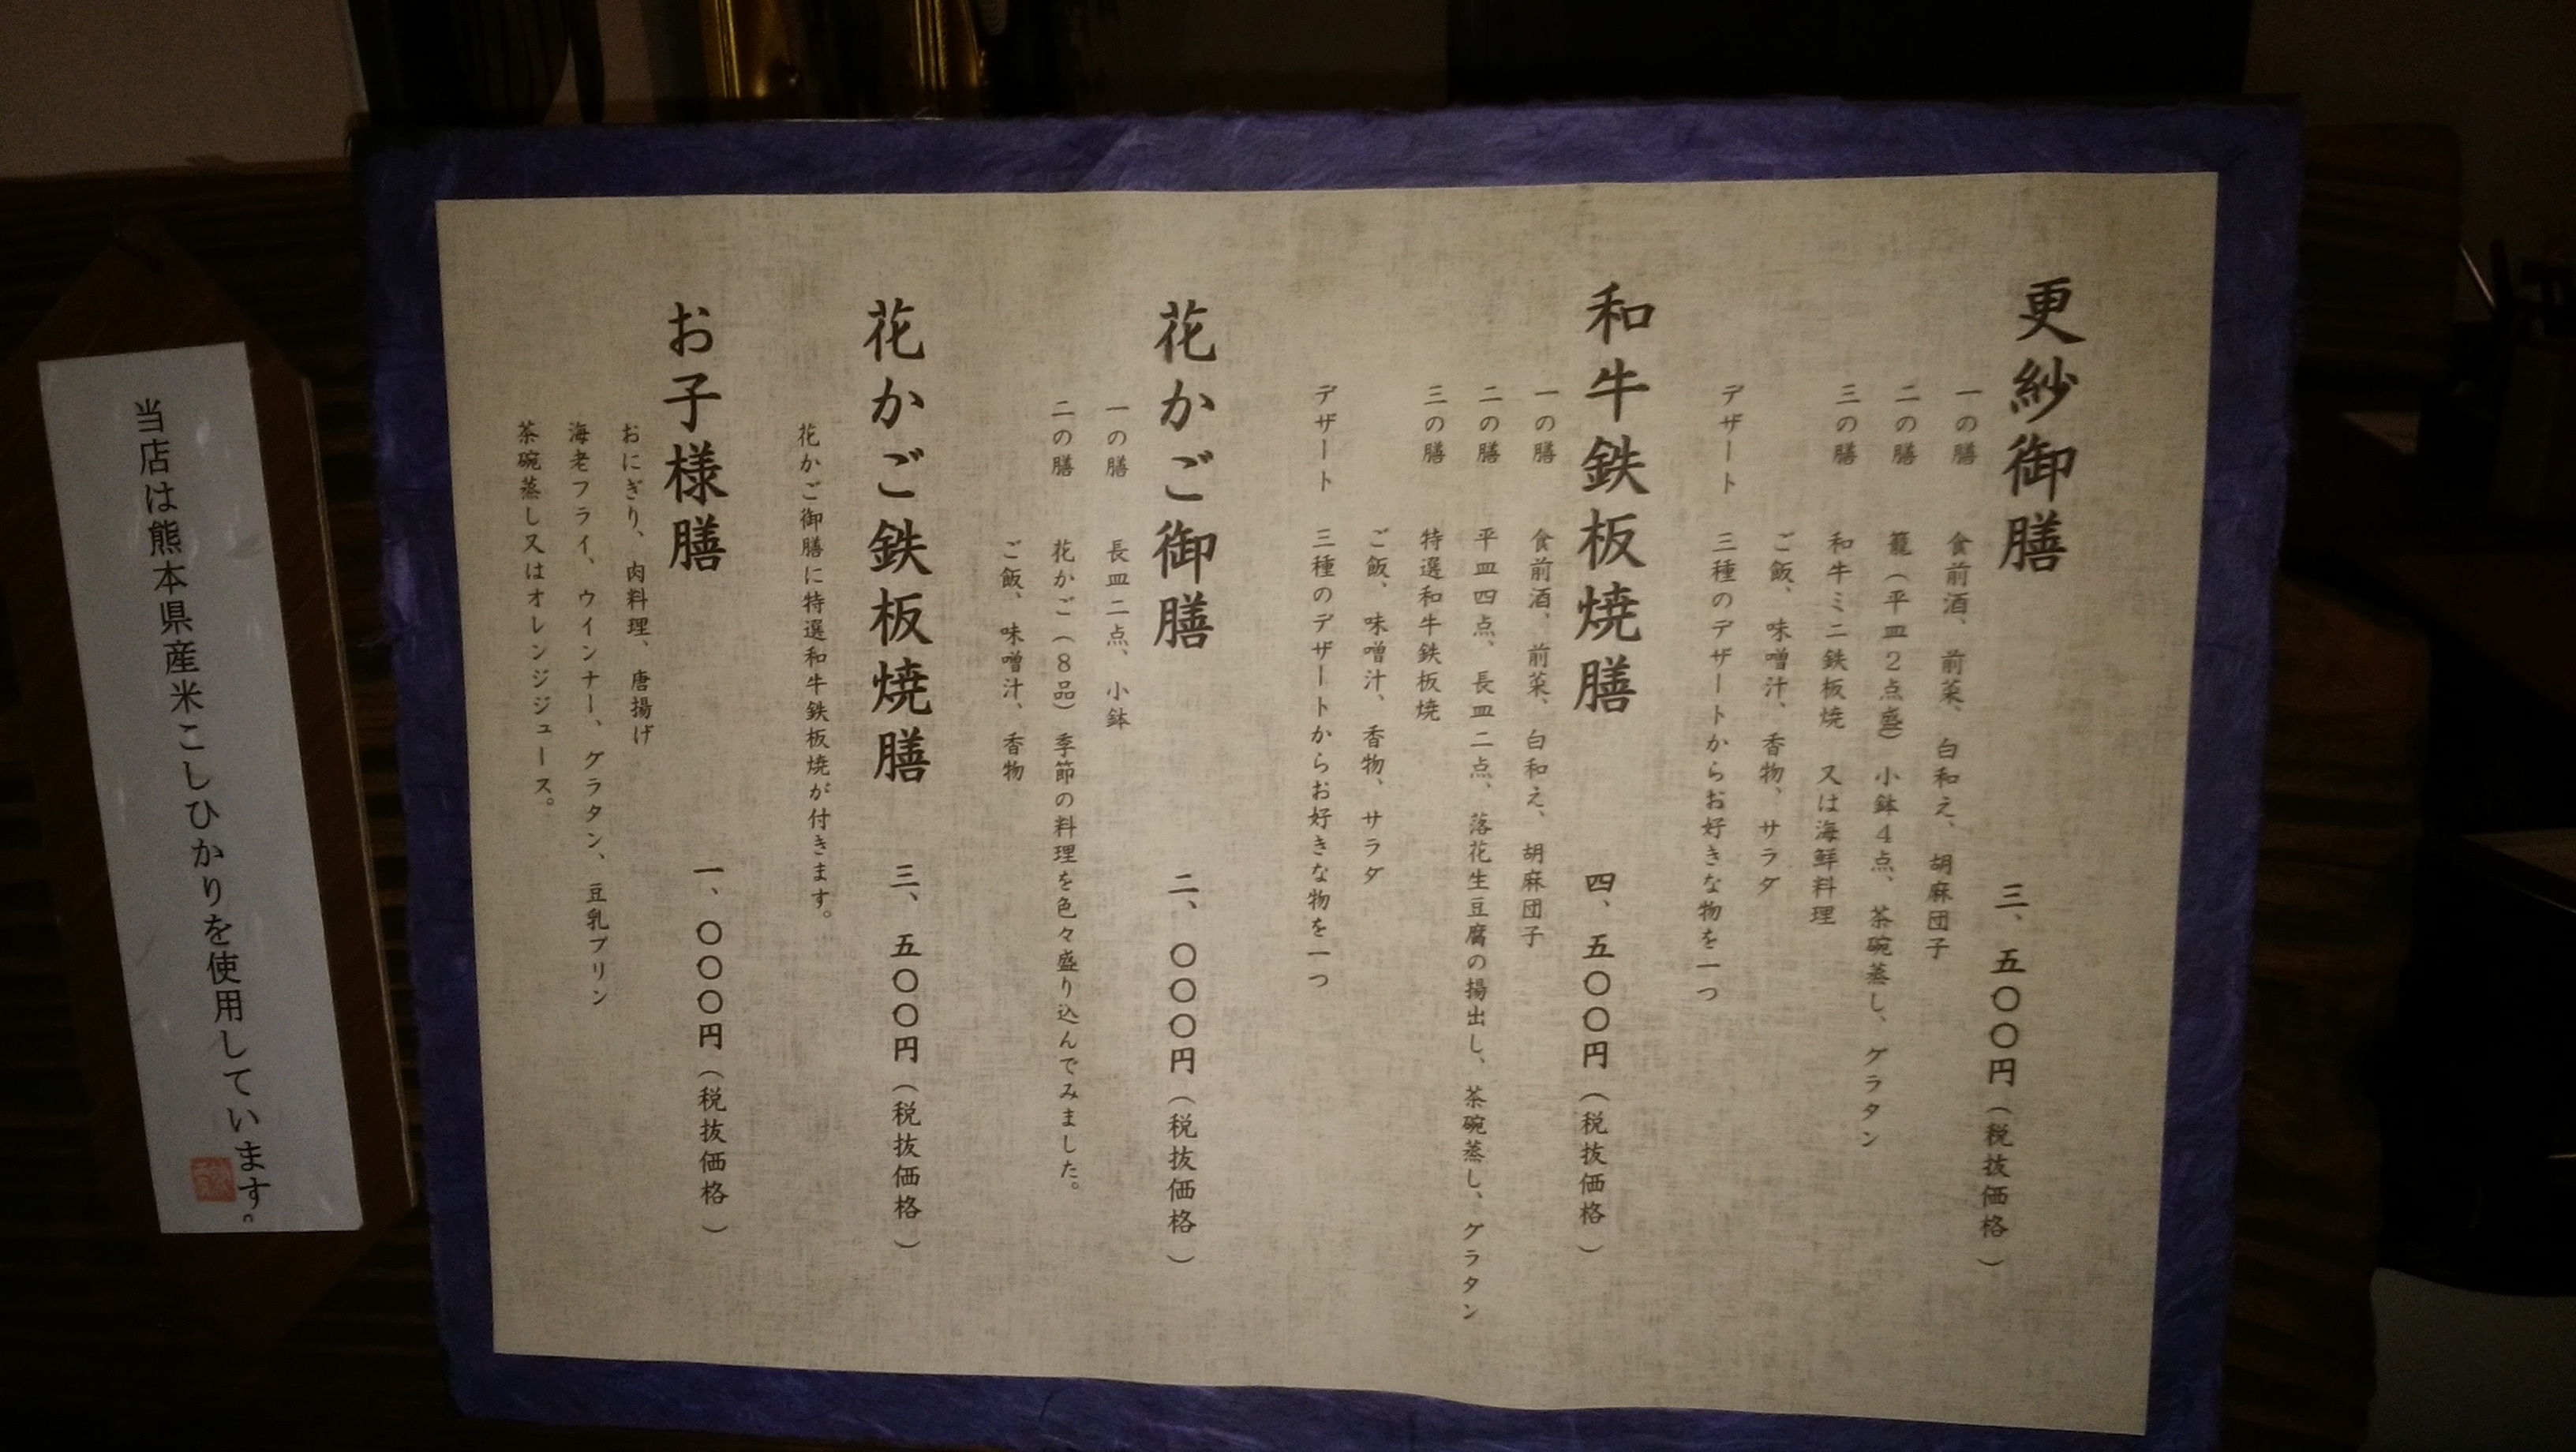 更紗御膳 三、五〇〇円(税抜価格)
一の膳 食前酒、前菜、白和え、胡麻団子
二の膳 籠(平皿2点盛)小鉢4点、茶碗蒸し、グラタン
三の膳 和牛ミニ鉄板焼 又は海鮮料理
ご飯、味噌汁、香物、サラダ
デザート 三種のデザートからお好きな物を一つ
和牛鉄板焼膳 四、五〇〇円(税抜価格)
一の膳 食前酒、前菜、白和え、胡麻団子
二の膳 平皿四点、長皿二点、落花生豆腐の揚出し、茶碗蒸し、グラタン
三の膳 特選和牛鉄板焼
ご飯、味噌汁、香物、サラダ
デザート 三種のデザートからお好きな物を一つ
花かご御膳 二、〇〇〇円(税抜価格)
一の膳 長皿二点、小鉢
二の膳 花かご(8品)季節の料理を色々盛り込んでみました。
ご飯、味噌汁、香物
花かご鉄板焼膳 三、五〇〇円(税抜価格)
花かご御膳に特選和牛鉄板焼が付きます。
お子様膳 一、〇〇〇円(税抜価格)
おにぎり、肉料理、唐揚げ
海老フライ、ウインナー、グラタン、豆乳プリン
茶碗蒸し又はオレンジジュース。
当店は熊本県産米こしひかりを使用しています。